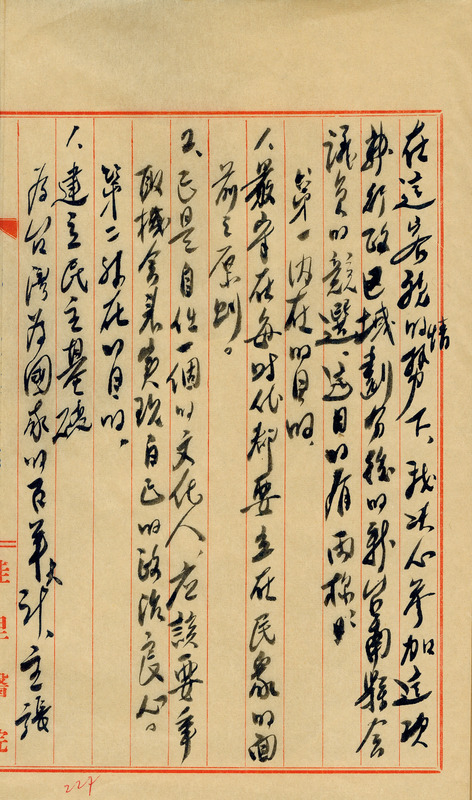 在這客観的情勢下、我决心参加這次
新行政區域劃分後的新台南縣会
議員的競選、這目的有兩様:
第一內在的目的、
1、最 在每時代都要立在民衆的面
前之原則。
2、已是自任一個的文化人、应該要爭
取機會來實現自己的政治良心。
第二外在的目的、
1、建立民主基礎
為台灣為國家的百年大計、主張
佳里醫院
227